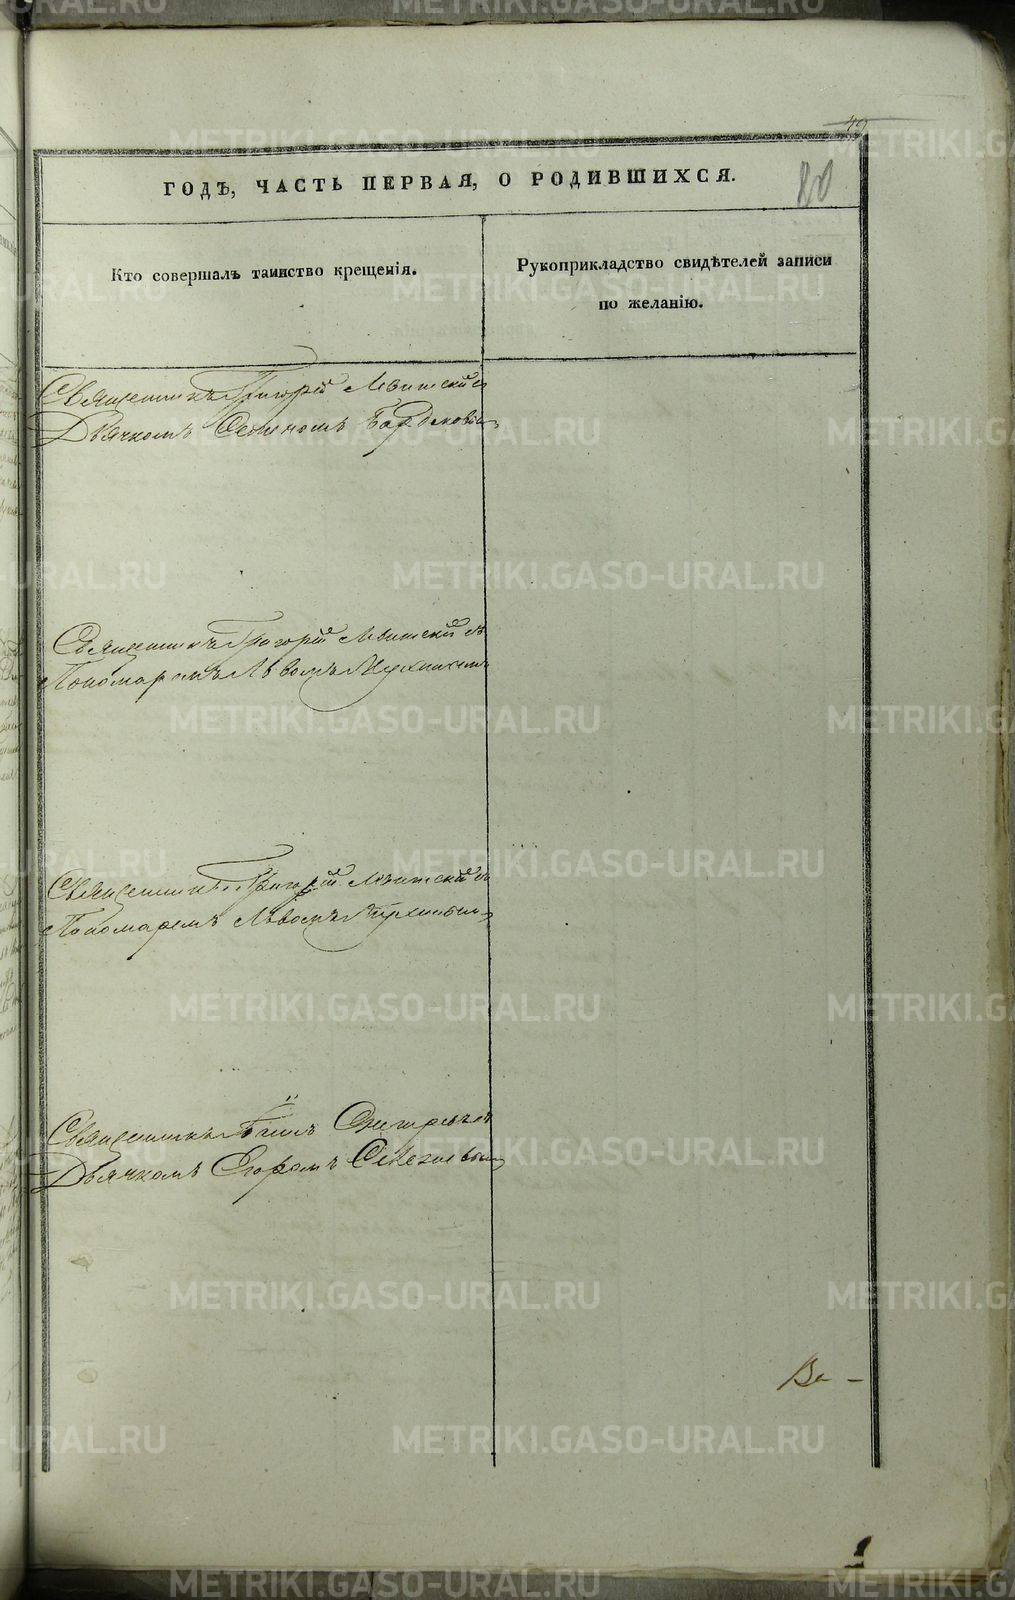 METRIKI.GASO-URAL.RU
49
ГОДЪ, ЧАСТЬ ПЕРВАЯ, О РОДИВШИХСЯ.
80
Кто совершалъ таинство крещенія.
Рукоприкладство свидѣтелей записи
по желанію.
Священникъ Григорій Левитскій съ
Дьячкомъ
Священникъ Григорій Левитскій съ
Пономаремъ Львомъ
Священникъ Григорій Левитскій съ
Пономаремъ Львомъ
Священникъ
Дьячкомъ Егоромъ